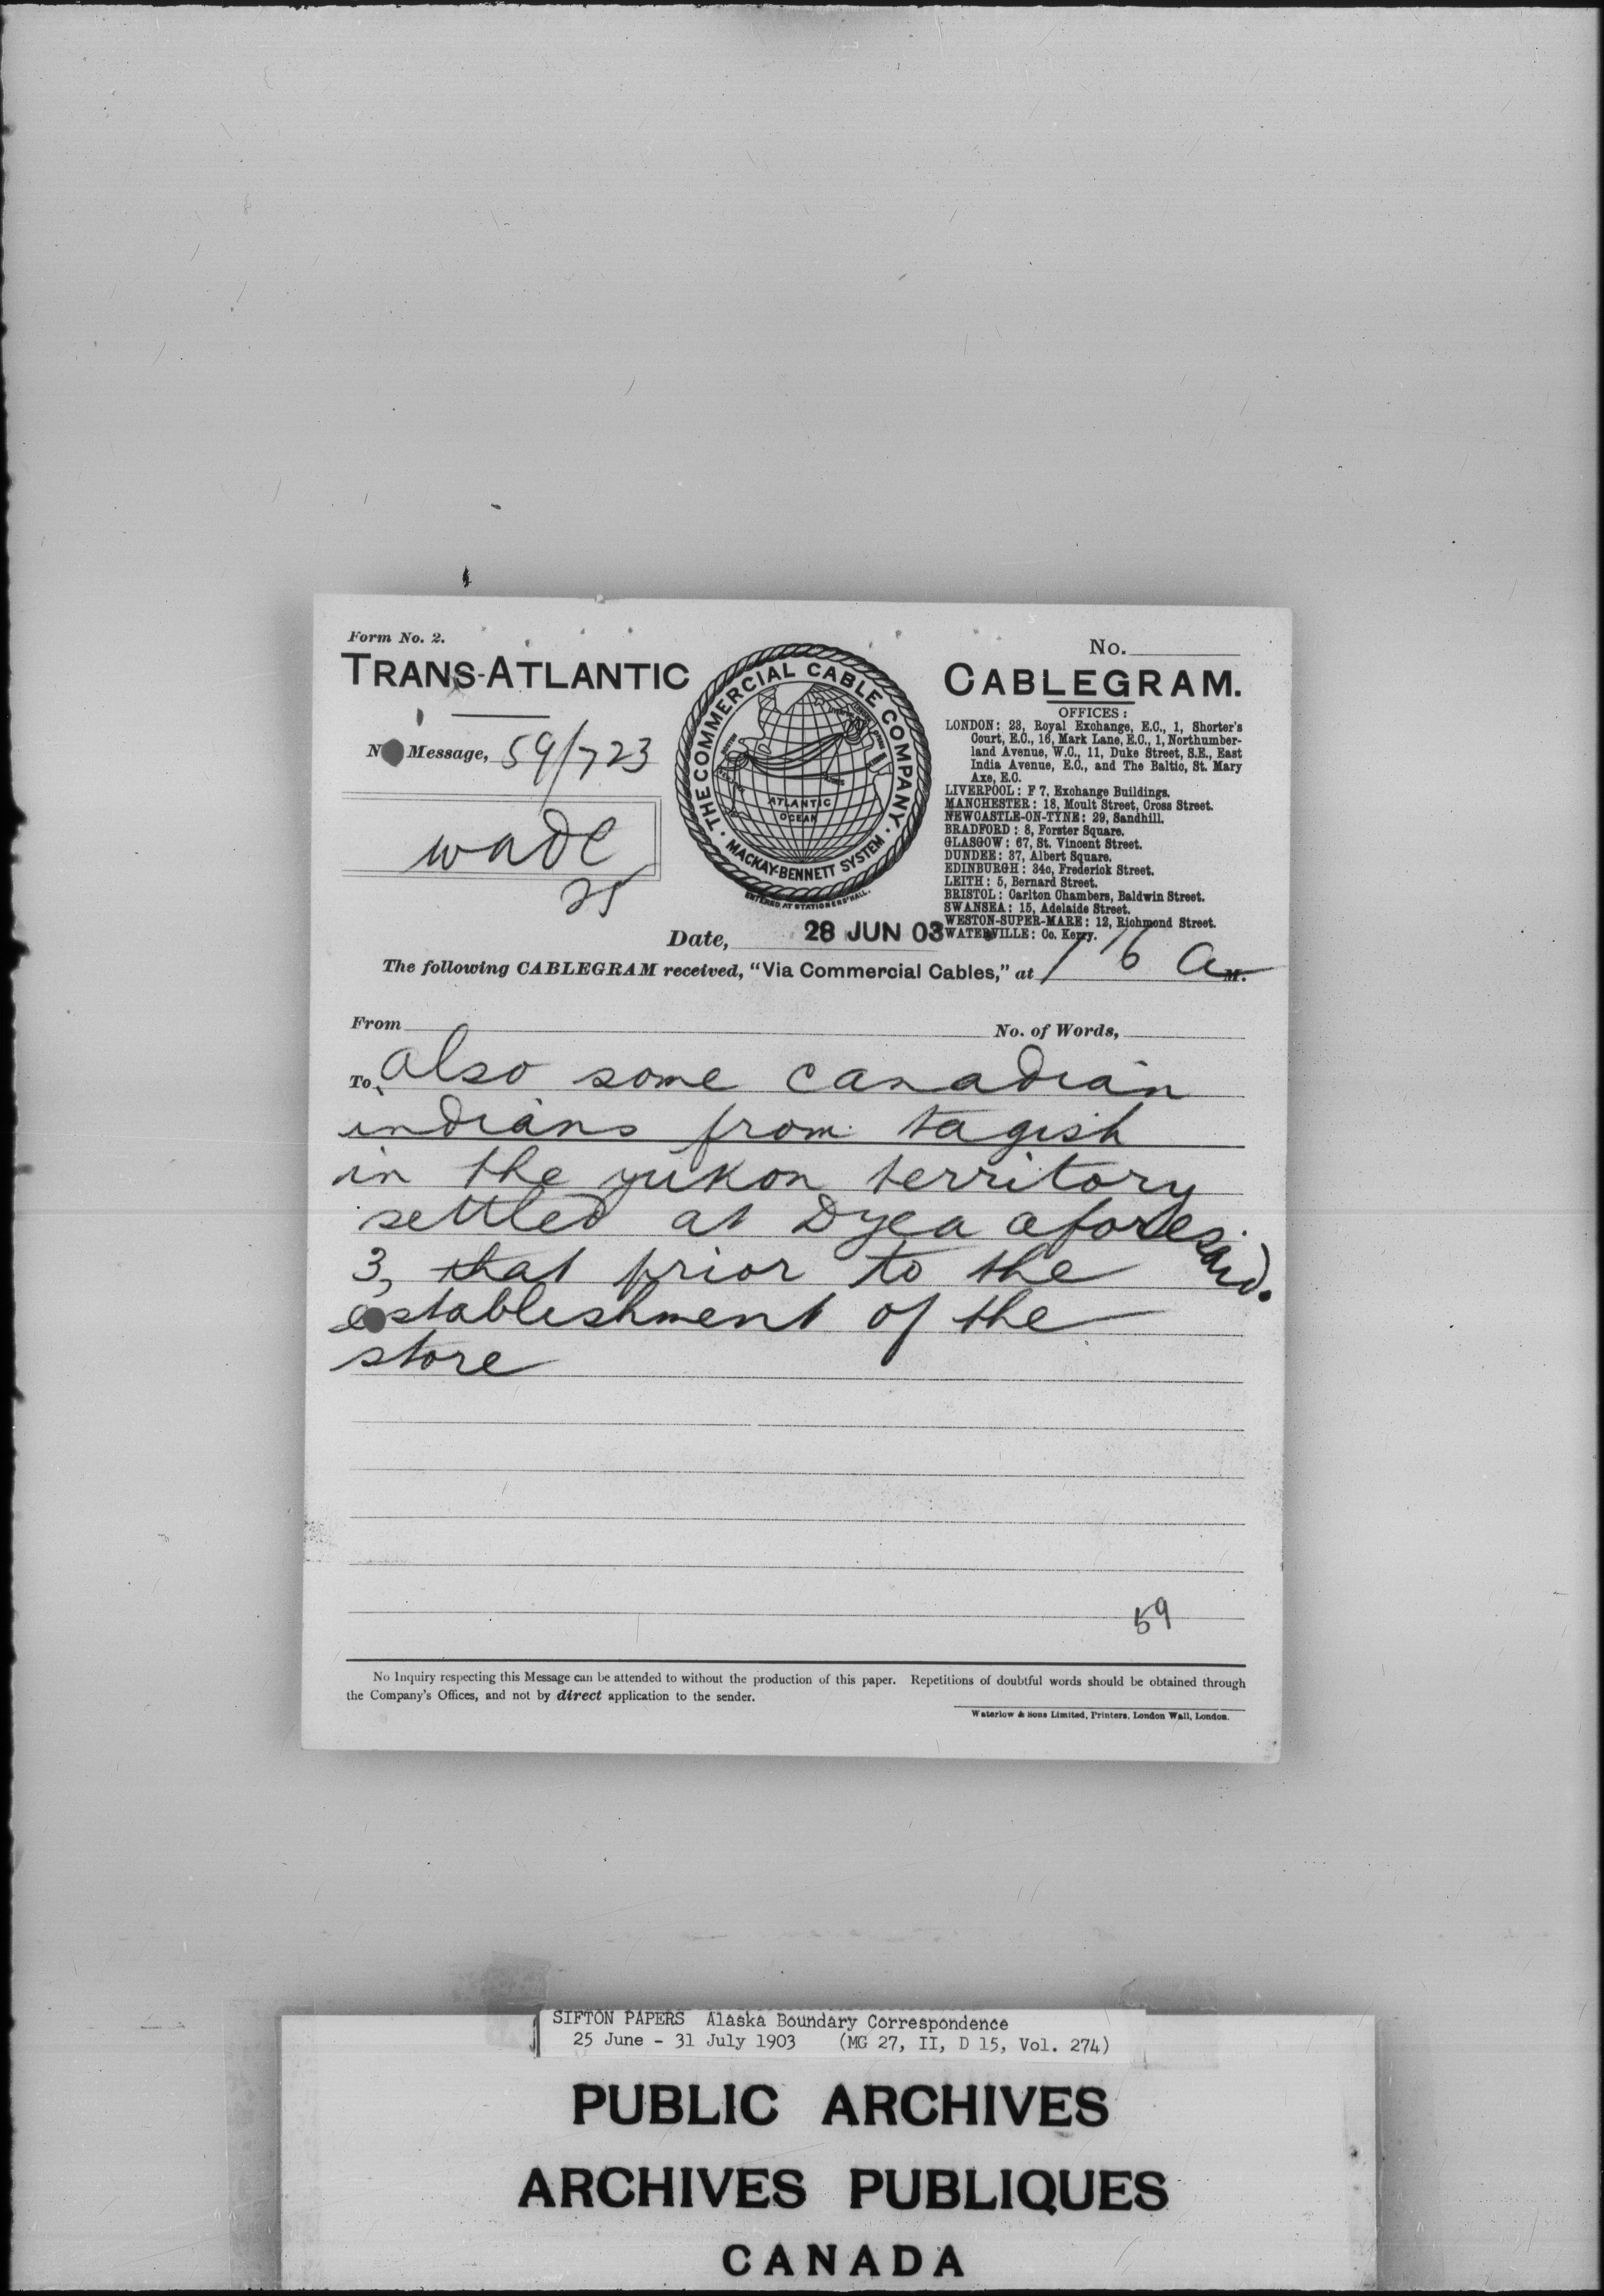 Form No. 2.
No.
TRANS-ATLANTIC
CABLEGRAM.
THE COMMERCIAL CABLE COMPANY
MACKAY-BENNETT SYSTEM
ATLANTIC
OCEAN
ENTERED AT STATIONERS' HALL.
OFFICES:
LONDON: 23, Royal Exchange, E.C., 1, Shorter's
Court, E.C., 16, Mark Lane, E.C., 1, Northumber-
land Avenue, W.C., 11, Duke Street, S.E., East
India Avenue, E.C., and The Baltic, St. Mary
Axe, E.C.
LIVERPOOL: F 7, Exchange Buildings.
MANCHESTER: 18, Moult Street, Cross Street.
NEWCASTLE-ON-TYNE: 29, Sandhill.
BRADFORD: 8, Forster Square.
GLASGOW: 67, St. Vincent Street.
DUNDEE: 37, Albert Square.
EDINBURGH: 34c, Frederick Street.
LEITH: 5, Bernard Street.
BRISTOL: Carlton Chambers, Baldwin Street.
SWANSEA: 15, Adelaide Street.
WESTON-SUPER-MARE: 12, Richmond Street.
WATERVILLE: Co. Kerry.
N Message, 59/723
wade
25
Date, 28 JUN 03
The following CABLEGRAM received, "Via Commercial Cables," at 1 16 a M.
From No. of Words,
To also some canadian
indians from tagish
in the yukon territory
settled at Dyea aforesaid.
3, that prior to the
establishment of the
store
59
No Inquiry respecting this Message can be attended to without the production of this paper. Repetitions of doubtful words should be obtained through
the Company's Offices, and not by direct application to the sender.
Waterlow & Sons Limited, Printers, London Wall, London.
SIFTON PAPERS Alaska Boundary Correspondence
25 June - 31 July 1903 (MG 27, II, D 15, Vol. 274)
PUBLIC ARCHIVES
ARCHIVES PUBLIQUES
CANADA